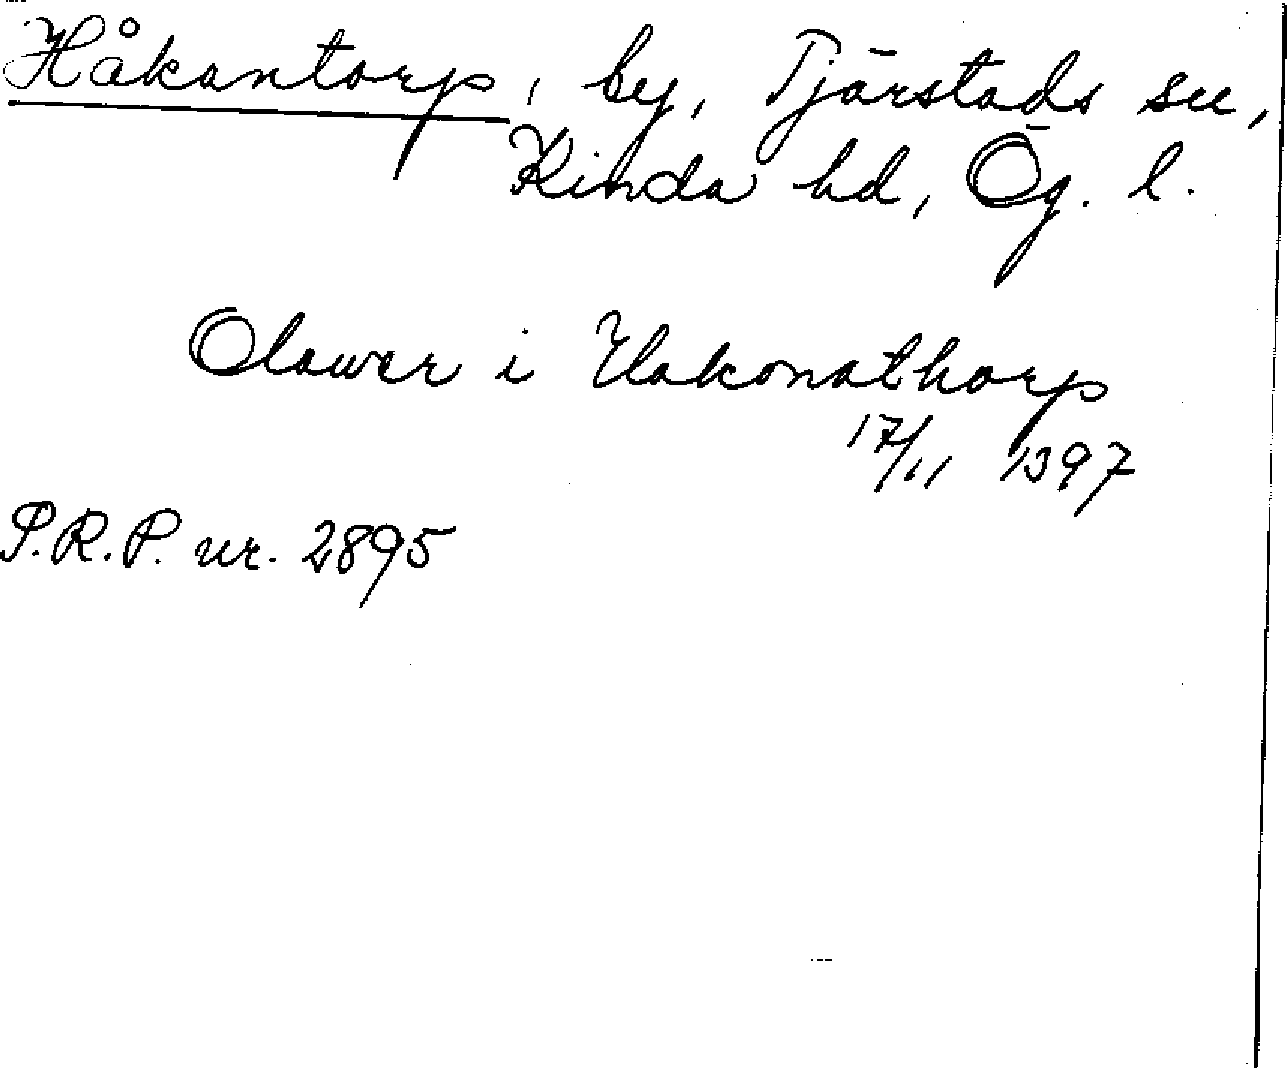 Håkantorp, by, Tjärstads sn,
Kinda hd, Ög. l.
Olawer i Hakonathorp
17/11 1397
S.R.P. nr. 2895